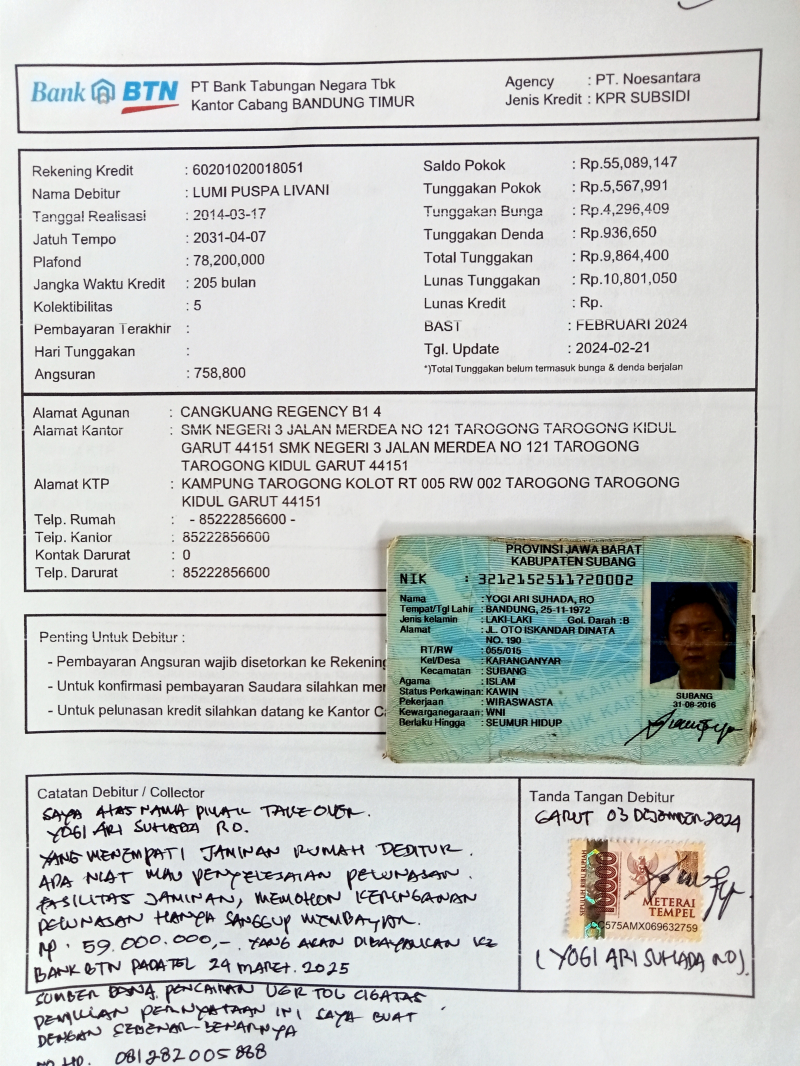 Bank BTN
PT Bank Tabungan Negara Tbk
Kantor Cabang BANDUNG TIMUR
Agency : PT. Noesantara
Jenis Kredit : KPR SUBSIDI
Rekening Kredit : 60201020018051
Nama Debitur : LUMI PUSPA LIVANI
Tanggal Realisasi : 2014-03-17
Jatuh Tempo : 2031-04-07
Plafond : 78,200,000
Jangka Waktu Kredit : 205 bulan
Kolektibilitas : 5
Pembayaran Terakhir :
Hari Tunggakan :
Angsuran : 758,800
Saldo Pokok : Rp.55,089,147
Tunggakan Pokok : Rp.5,567,991
Tunggakan Bunga : Rp.4,296,409
Tunggakan Denda : Rp.936,650
Total Tunggakan : Rp.9,864,400
Lunas Tunggakan : Rp.10,801,050
Lunas Kredit : Rp.
BAST : FEBRUARI 2024
Tgl. Update : 2024-02-21
*)Total Tunggakan belum termasuk bunga & denda berjalan
Alamat Agunan : CANGKUANG REGENCY B1 4
Alamat Kantor : SMK NEGERI 3 JALAN MERDEA NO 121 TAROGONG TAROGONG KIDUL
GARUT 44151 SMK NEGERI 3 JALAN MERDEA NO 121 TAROGONG
TAROGONG KIDUL GARUT 44151
Alamat KTP : KAMPUNG TAROGONG KOLOT RT 005 RW 002 TAROGONG TAROGONG
KIDUL GARUT 44151
Telp. Rumah : - 85222856600 -
Telp. Kantor : 85222856600
Kontak Darurat : 0
Telp. Darurat : 85222856600
PROVINSI JAWA BARAT
KABUPATEN SUBANG
NIK : 3212152511720002
Nama : YOGI ARI SUHADA, RO
Tempat/Tgl Lahir : BANDUNG, 25-11-1972
Jenis kelamin : LAKI-LAKI Gol. Darah : B
Alamat : JL. OTO ISKANDAR DINATA
NO. 190
RT/RW : 055/015
Kel/Desa : KARANGANYAR
Kecamatan : SUBANG
Agama : ISLAM
Status Perkawinan: KAWIN
Pekerjaan : WIRASWASTA
Kewarganegaraan: WNI
Berlaku Hingga : SEUMUR HIDUP
SUBANG
31-08-2016
Penting Untuk Debitur :
- Pembayaran Angsuran wajib disetorkan ke Rekening
- Untuk konfirmasi pembayaran Saudara silahkan
- Untuk pelunasan kredit silahkan datang ke Kantor
Catatan Debitur / Collector
SAYA ATAS NAMA PIHAK TAKE OVER.
YOGI ARI SUHADA RO.
YANG MENEMPATI JAMINAN RUMAH DEDITUR.
ADA NIAT MAU PENYELESAIAN PELUNASAN.
FASILITAS JAMINAN, MEMOHON KERINGANAN
PELUNASAN HANYA SANGGUP MEMBAYAR.
Rp. 59.000.000,- YANG AKAN DIBAYARKAN KE
BANK BTN PADA TGL 24 MARET. 2025
SUMBER DANA, PENCAIRAN UGR TOL CIGATAS
DEMIKIAN PERNYATAAN INI SAYA BUAT
DENGAN SEBENAR-BENARNYA
NO HP. 081282005888
Tanda Tangan Debitur
GARUT 03 DESEMBER 2024
SEPULUH RIBU RUPIAH
10000
METERAI
TEMPEL
C575AMX069632759
(YOGI ARI SUHADA RO).